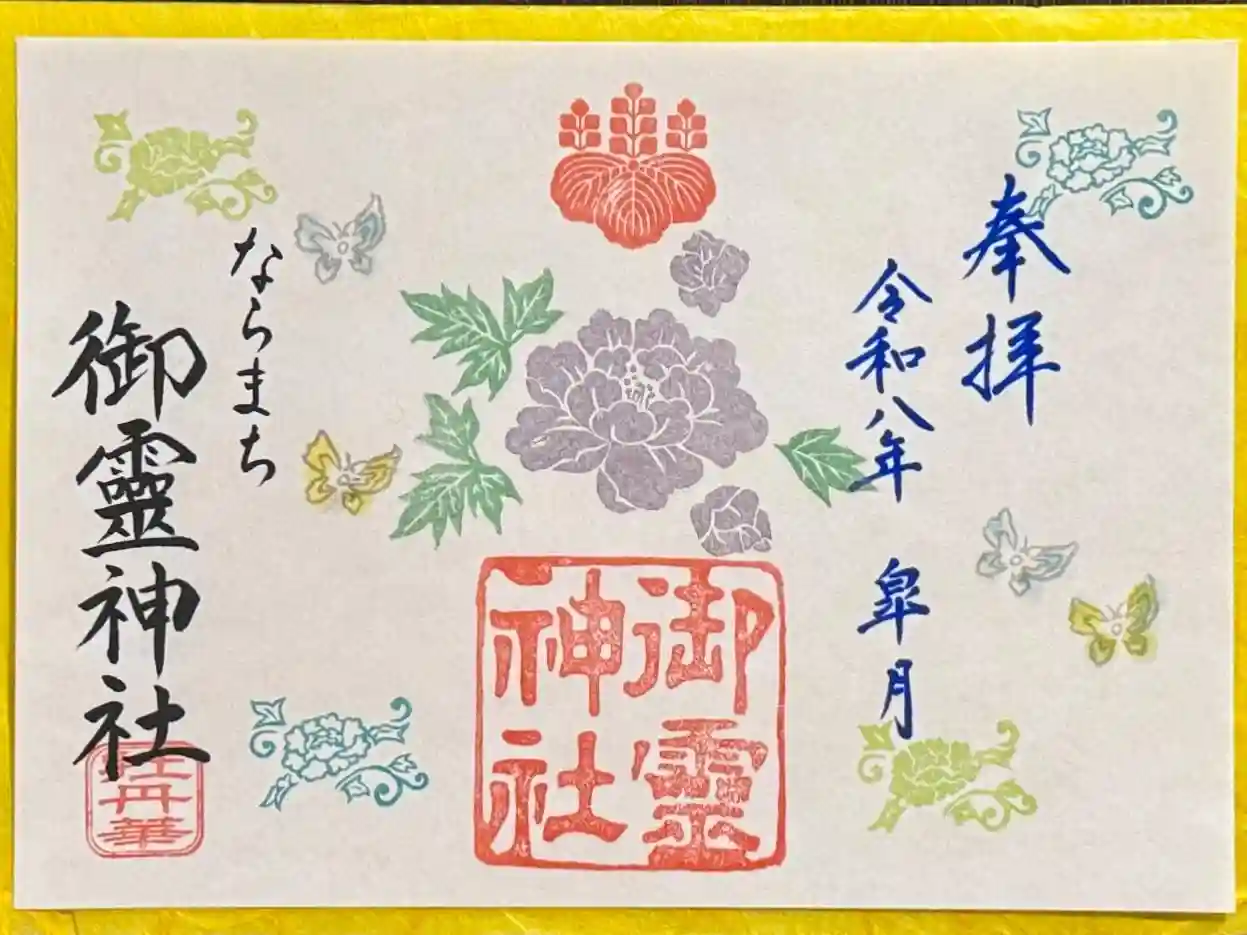 奉拝
令和八年 皐月
御靈
神社
ならまち
御靈神社
牡丹華